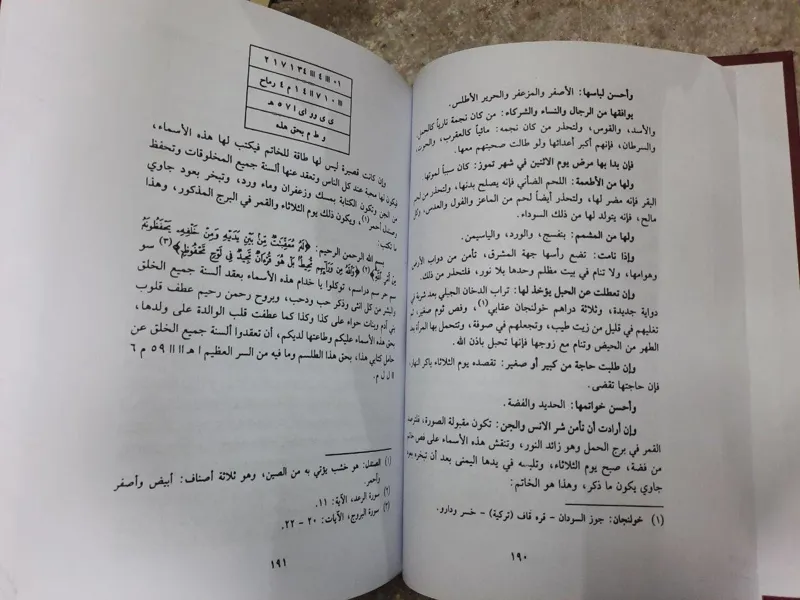 وأحسن لباسها: الأصفر والمزعفر والحرير الأطلس.
يوافقها من الرجال والنساء والشركاء: من كان نجمة نارياً كالحمل
والأسد، والقوس، ولتحذر من كان نجمه: مائياً كالعقرب، والحوت،
والسرطان، فإنهم أكبر أعدائها ولو طالت صحبتهم معها.
فإن بدا بها مرض يوم الاثنين في شهر تموز: كان سبباً لموتها.
ولها من الأطعمة: اللحم الضأني فإنه يصلح بدنها، ولتحذر من لحم
البقر فإنه مضر لها، ولتحذر أيضاً لحم من الماعز والفول والعدس، وكل
مالح، فإنه يتولد لها من ذلك السوداء.
ولها من المشمم: بنفسج، والورد، والياسمين.
وإذا نامت: تضع رأسها جهة المشرق، تأمن من دواب الأرض
وهوامها، ولا تنام في بيت مظلم وحدها بلا نور، فلتحذر من ذلك.
وإن تعطلت عن الحبل يؤخذ لها: تراب الدخان الجبلي بعد
دواية جديدة، وثلاثة دراهم خولنجان عقابي(١)، وفص ثوم صغير،
تغليهم في قليل من زيت طيب، وتجعلهم في صوفة، وتتحمل بها المرأة بعد
الطهر من الحيض وتنام مع زوجها فإنها تحبل باذن الله.
وإن طلبت حاجة من كبير أو صغير: تقصده يوم الثلاثاء باكر النهار،
فإن حاجتها تقضى.
وأحسن خواتمها: الحديد والفضة.
وإن أرادت أن تأمن شر الانس والجن: تكون مقبولة الصورة، فلترصد
القمر في برج الحمل وهو زائد النور، وتنقش هذه الأسماء على فص خاتم
من فضة، صبح يوم الثلاثاء، وتلبسه في يدها اليمنى بعد أن تبخره بعود
جاوي يكون ما ذكر، وهذا هو الخاتم:
(١) خولنجان: جوز السودان - قره قاف (تركية) - خسر ودارو.
١٩٠
٠١ ااا ٤ ااا ٣٤ ١ ٧ ١ ٢
ااا ٠ ١ ٧ اا ٤ ١ م ٤ رماح
ى ى وو اى ١ ٥٧ هـ
و ط م بحق هذه
وإن كانت قصيرة ليس لها طاقة للخاتم فيكتب لها هذه الأسماء،
فيكون لها محبة عند كل الناس وتعقد عنها ألسنة جميع المخلوقات وتحفظ
من الجن وتكون الكتابة بمسك وزعفران وماء ورد، وتبخر بعود جاوي
وصندل أحمر(١)، ويكون ذلك يوم الثلاثاء والقمر في البرج المذكور، وهذا
ما تكتب:
بسم الله الرحمن الرحيم: ﴿لَهُ مُعَقِّبَاتٌ مِّنْ بَيْنِ يَدَيْهِ وَمِنْ خَلْفِهِ يَحْفَظُونَهُ
مِنْ أَمْرِ اللَّهِ﴾(٢) ﴿وَاللَّهُ مِن وَرَائِهِم مُّحِيطٌ بَلْ هُوَ قُرْآنٌ مَّجِيدٌ فِي لَوْحٍ مَّحْفُوظٍ﴾(٣) سو
سم حر سم دراسم، توكلوا يا خدام هذه الأسماء بعقد ألسنة جميع الخلق
والبشر من كل انثى وذكر حب ودحب، وبروح رحمن رحيم عطف قلوب
بني آدم وبنات حواء على كذا وكذا كما عطفت قلب الوالدة على ولدها،
بحق هذه الأسماء عليكم وطاعتها لديكم، أن تعقدوا ألسنة جميع الخلق عن
حامل كتابي هذا، بحق هذا الطلسم وما فيه من السر العظيم ا هـ ١١ ١١ ٥٩ م ٦
ا ل ل م.
(١) الصندل: هو خشب يؤتي به من الصين، وهو ثلاثة أصناف: أبيض وأصفر
وأحمر.
(٢) سورة الرعد، الآية: ١١.
(٣) سورة البروج، الآيات: ٢٠ - ٢٢.
١٩١